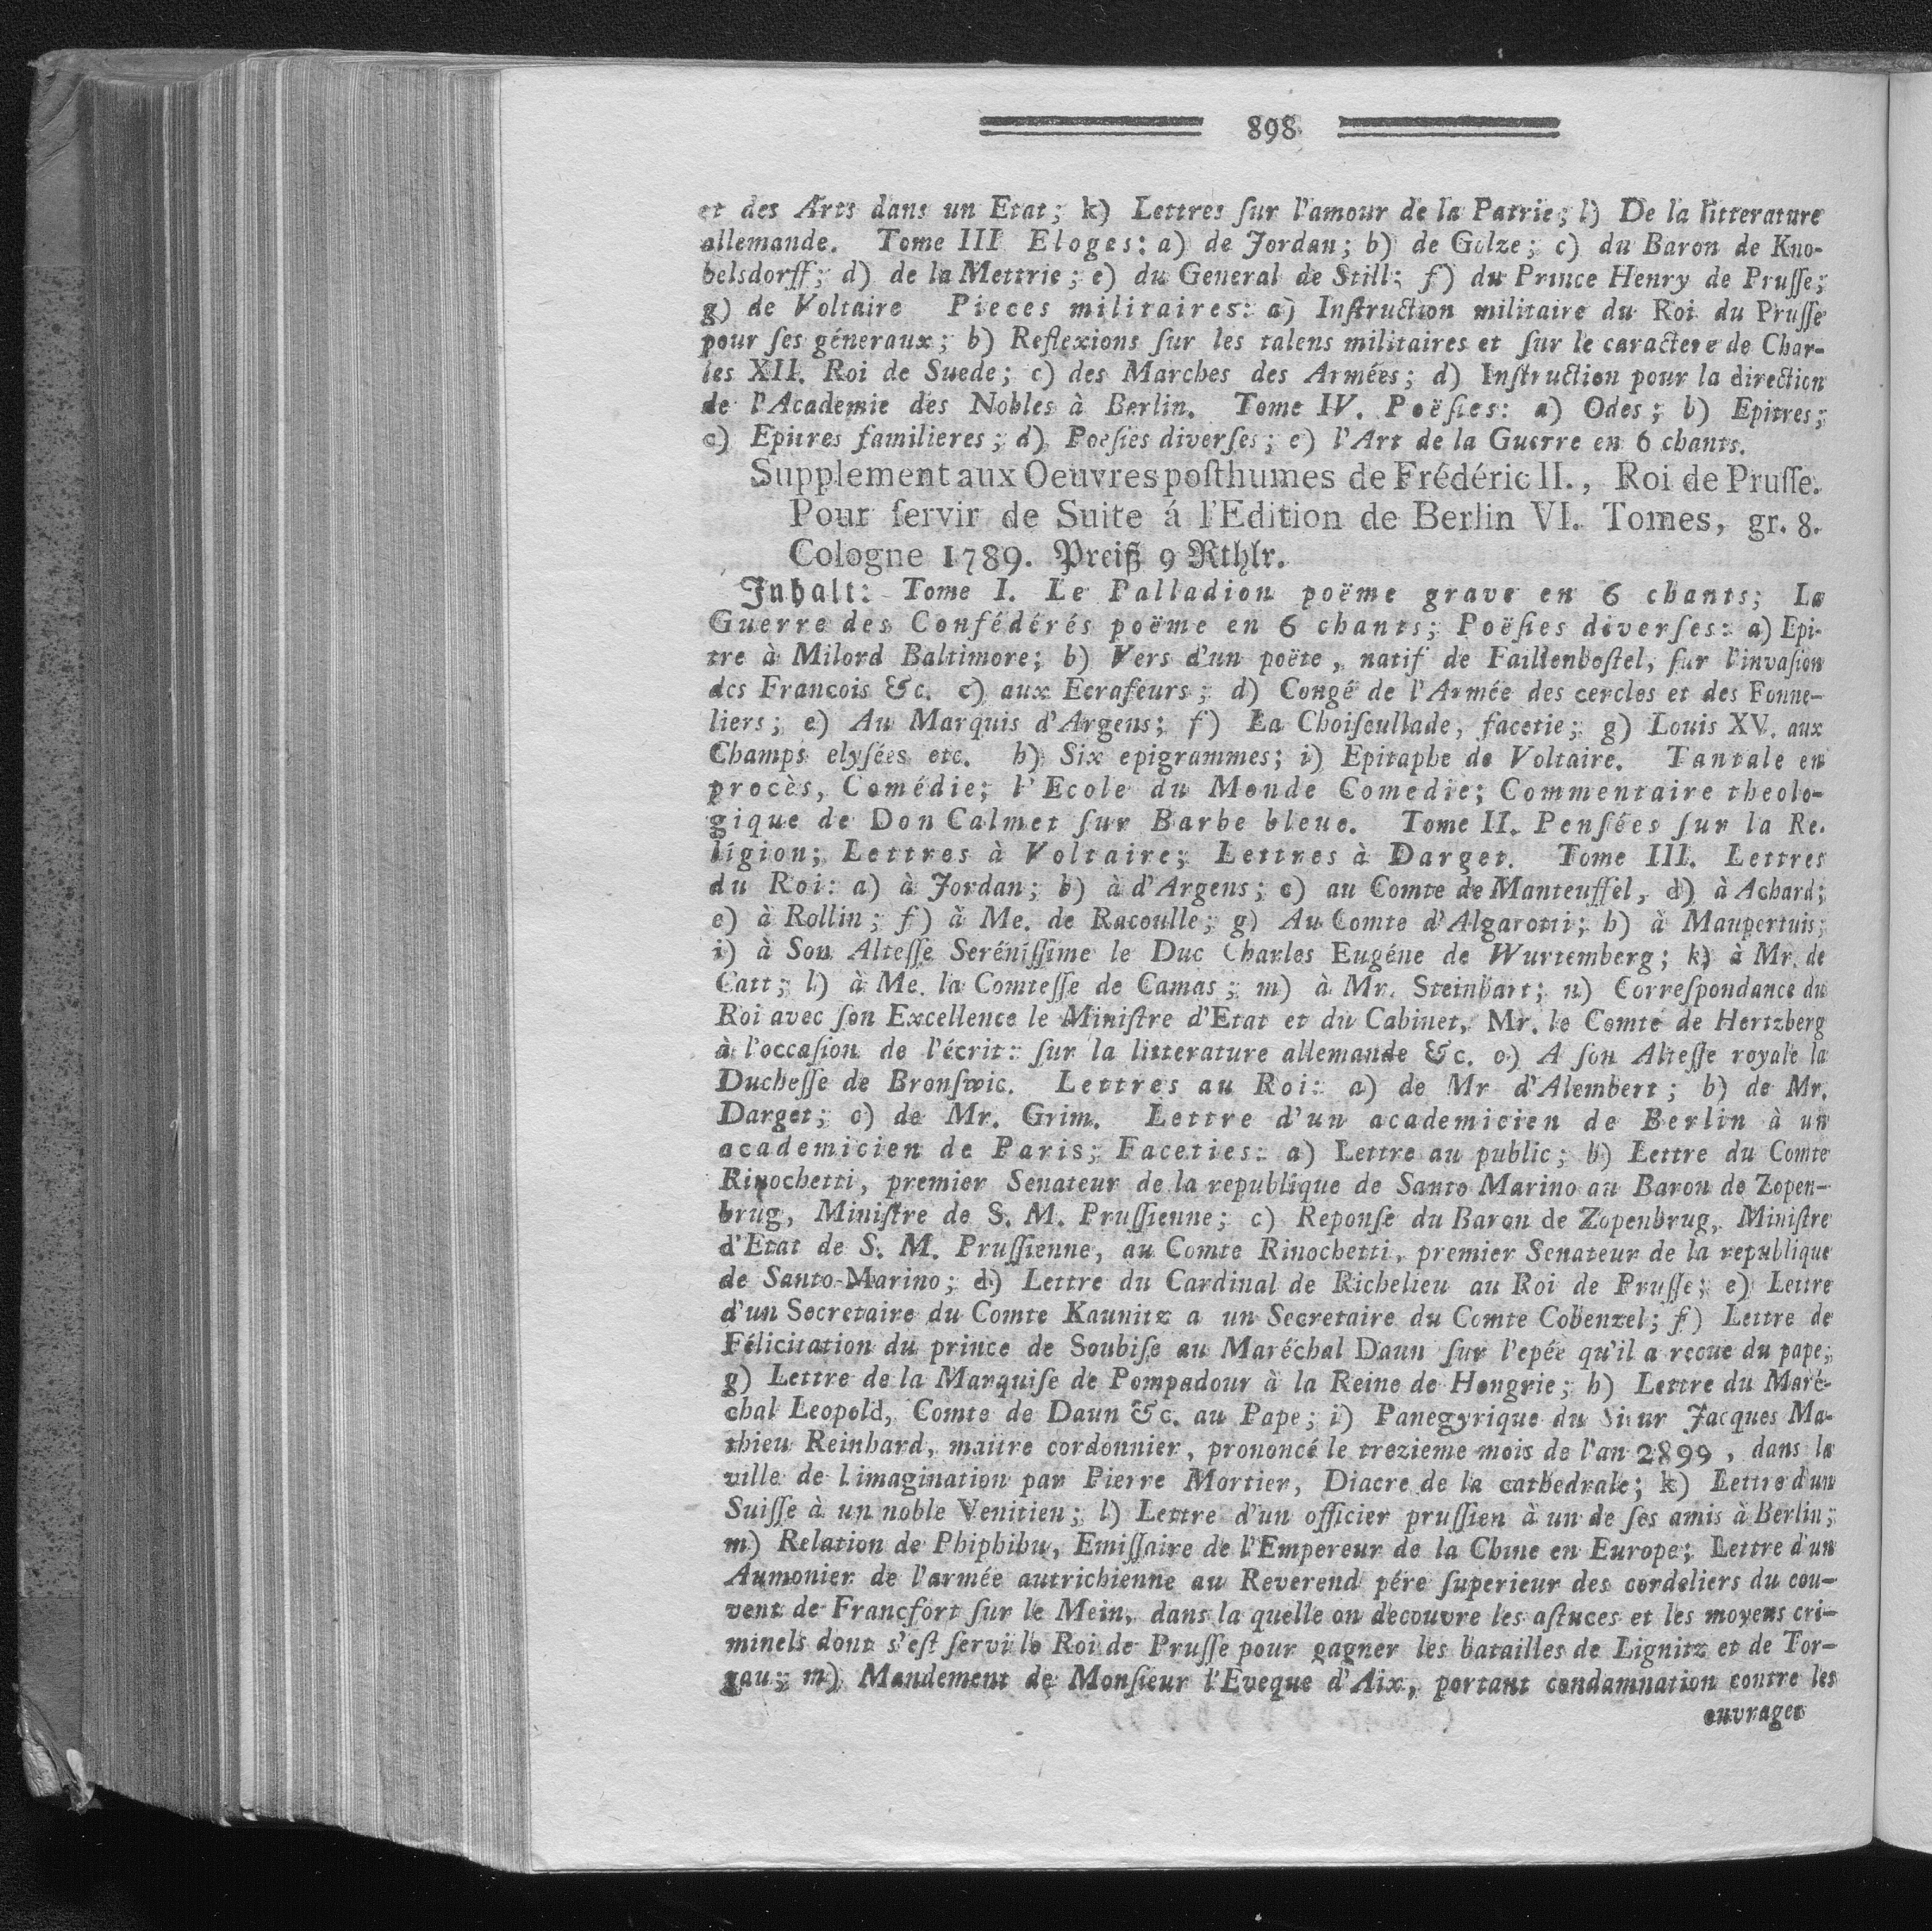 898
et des Arts dans un Etat; k) Lettres ſur l'amour de la Patrie; l) De la litterature
allemande. Tome III Eloges: a) de Jordan; b) de Golze; c) du Baron de Kno-
belsdorff; d) de la Mettrie; e) du General de Still; f) du Prince Henry de Pruſſe;
g) de Voltaire Pieces militaires: a) Inſtruction militaire du Roi du Pruſſe
pour ſes géneraux; b) Reflexions ſur les talens militaires et ſur le caractere de Char-
les XII. Roi de Suede; c) des Marches des Armées; d) Inſtruction pour la direction
de l'Academie des Nobles à Berlin. Tome IV. Poëſies: a) Odes; b) Epitres;
c) Epitres familieres; d) Poeſies diverſes; e) l'Art de la Guerre en 6 chants.
Supplement aux Oeuvres poſthumes de Frédéric II., Roi de Pruſſe.
Pour ſervir de Suite á l'Edition de Berlin VI. Tomes, gr. 8.
Cologne 1789. Preiß 9 Rthlr.
Inhalt: Tome I. Le Palladion poëme grave en 6 chants; La
Guerre des Confédérés poëme en 6 chants; Poëſies diverſes: a) Epi-
tre à Milord Baltimore; b) Vers d'un poëte, natif de Faillenboſtel, ſur l'invaſion
des Francois &c. c) aux Ecraſeurs; d) Congé de l'Armée des cercles et des Fonne-
liers; e) Au Marquis d'Argens; f) La Choiſeullade, facetie; g) Louis XV. aux
Champs elyſées etc. h) Six epigrammes; i) Epitaphe de Voltaire. Tantale en
procès, Comédie; l'Ecole du Monde Comedie; Commentaire theolo-
gique de Don Calmet ſur Barbe bleue. Tome II. Penſées ſur la Re-
ligion; Lettres à Voltaire; Lettres à Darget. Tome III. Lettres
du Roi: a) à Jordan; b) à d'Argens; c) au Comte de Manteuffel, d) à Achard;
e) à Rollin; f) à Me. de Racoulle; g) Au Comte d'Algarotti; h) à Maupertuis;
i) à Son Alteſſe Seréniſſime le Duc Charles Eugéne de Wurtemberg; k) à Mr. de
Catt; l) à Me. la Comteſſe de Camas; m) à Mr. Steinbart; n) Correſpondance du
Roi avec ſon Excellence le Miniſtre d'Etat et du Cabinet, Mr. le Comte de Hertzberg
à l'occaſion de l'écrit: ſur la litterature allemande &c. o) A ſon Alteſſe royale la
Ducheſſe de Bronſwic. Lettres au Roi: a) de Mr d'Alembert; b) de Mr.
Darget; c) de Mr. Grim. Lettre d'un academicien de Berlin à un
academicien de Paris; Faceties: a) Lettre au public; b) Lettre du Comte
Rinochetti, premier Senateur de la republique de Santo Marino au Baron de Zopen-
brug, Miniſtre de S. M. Pruſſienne; c) Reponſe du Baron de Zopenbrug, Miniſtre
d'Etat de S. M. Pruſſienne, au Comte Rinochetti, premier Senateur de la republique
de Santo-Marino; d) Lettre du Cardinal de Richelieu au Roi de Pruſſe; e) Lettre
d'un Secretaire du Comte Kaunitz a un Secretaire du Comte Cobenzel; f) Lettre de
Félicitation du prince de Soubiſe au Maréchal Daun ſur l'epée qu'il a reçue du pape;
g) Lettre de la Marquiſe de Pompadour à la Reine de Hongrie; h) Lettre du Maré-
chal Leopold, Comte de Daun &c. au Pape; i) Panegyrique du Sieur Jacques Ma-
thieu Reinhard, maitre cordonnier, prononcé le trezieme mois de l'an 2899, dans la
ville de l imagination par Pierre Mortier, Diacre de la cathedrale; k) Lettre d'un
Suiſſe à un noble Venitien; l) Lettre d'un officier pruſſien à un de ſes amis à Berlin;
m) Relation de Phiphihu, Emiſſaire de l'Empereur de la Chine en Europe; Lettre d'un
Aumonier de l'armée autrichienne au Reverend pére ſuperieur des cordeliers du cou-
vent de Francfort ſur le Mein, dans la quelle on decouvre les aſtuces et les moyens cri-
minels dont s'eſt ſervi le Roi de Pruſſe pour gagner les batailles de Lignitz et de Tor-
gau; m) Mandement de Monſieur l'Eveque d'Aix, portant condamnation contre les
ouvrages